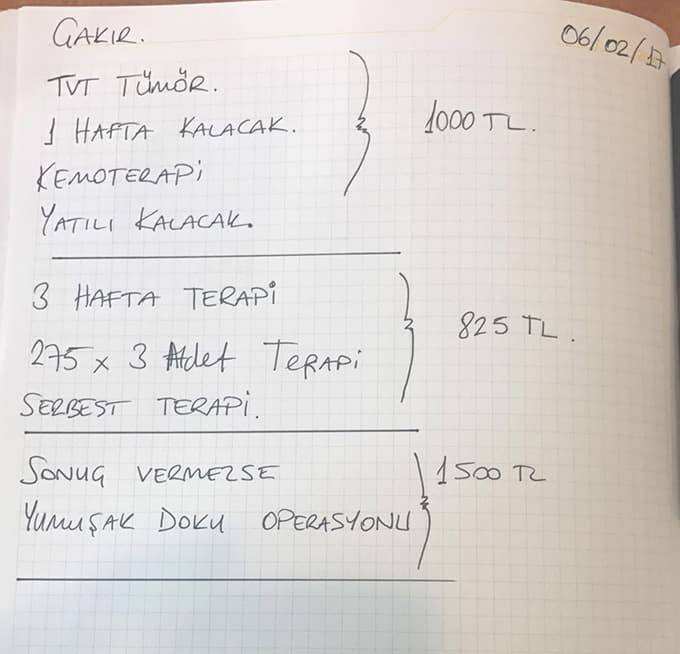 ÇAKIR.
06/02/17
TVT TÜMÖR.
1 HAFTA KALACAK.
1000 TL.
KEMOTERAPİ
YATILI KALACAK.
3 HAFTA TERAPİ
825 TL.
275 x 3 Adet TERAPİ
SERBEST TERAPİ.
SONUÇ VERMEZSE
1500 TL
YUMUŞAK DOKU OPERASYONU